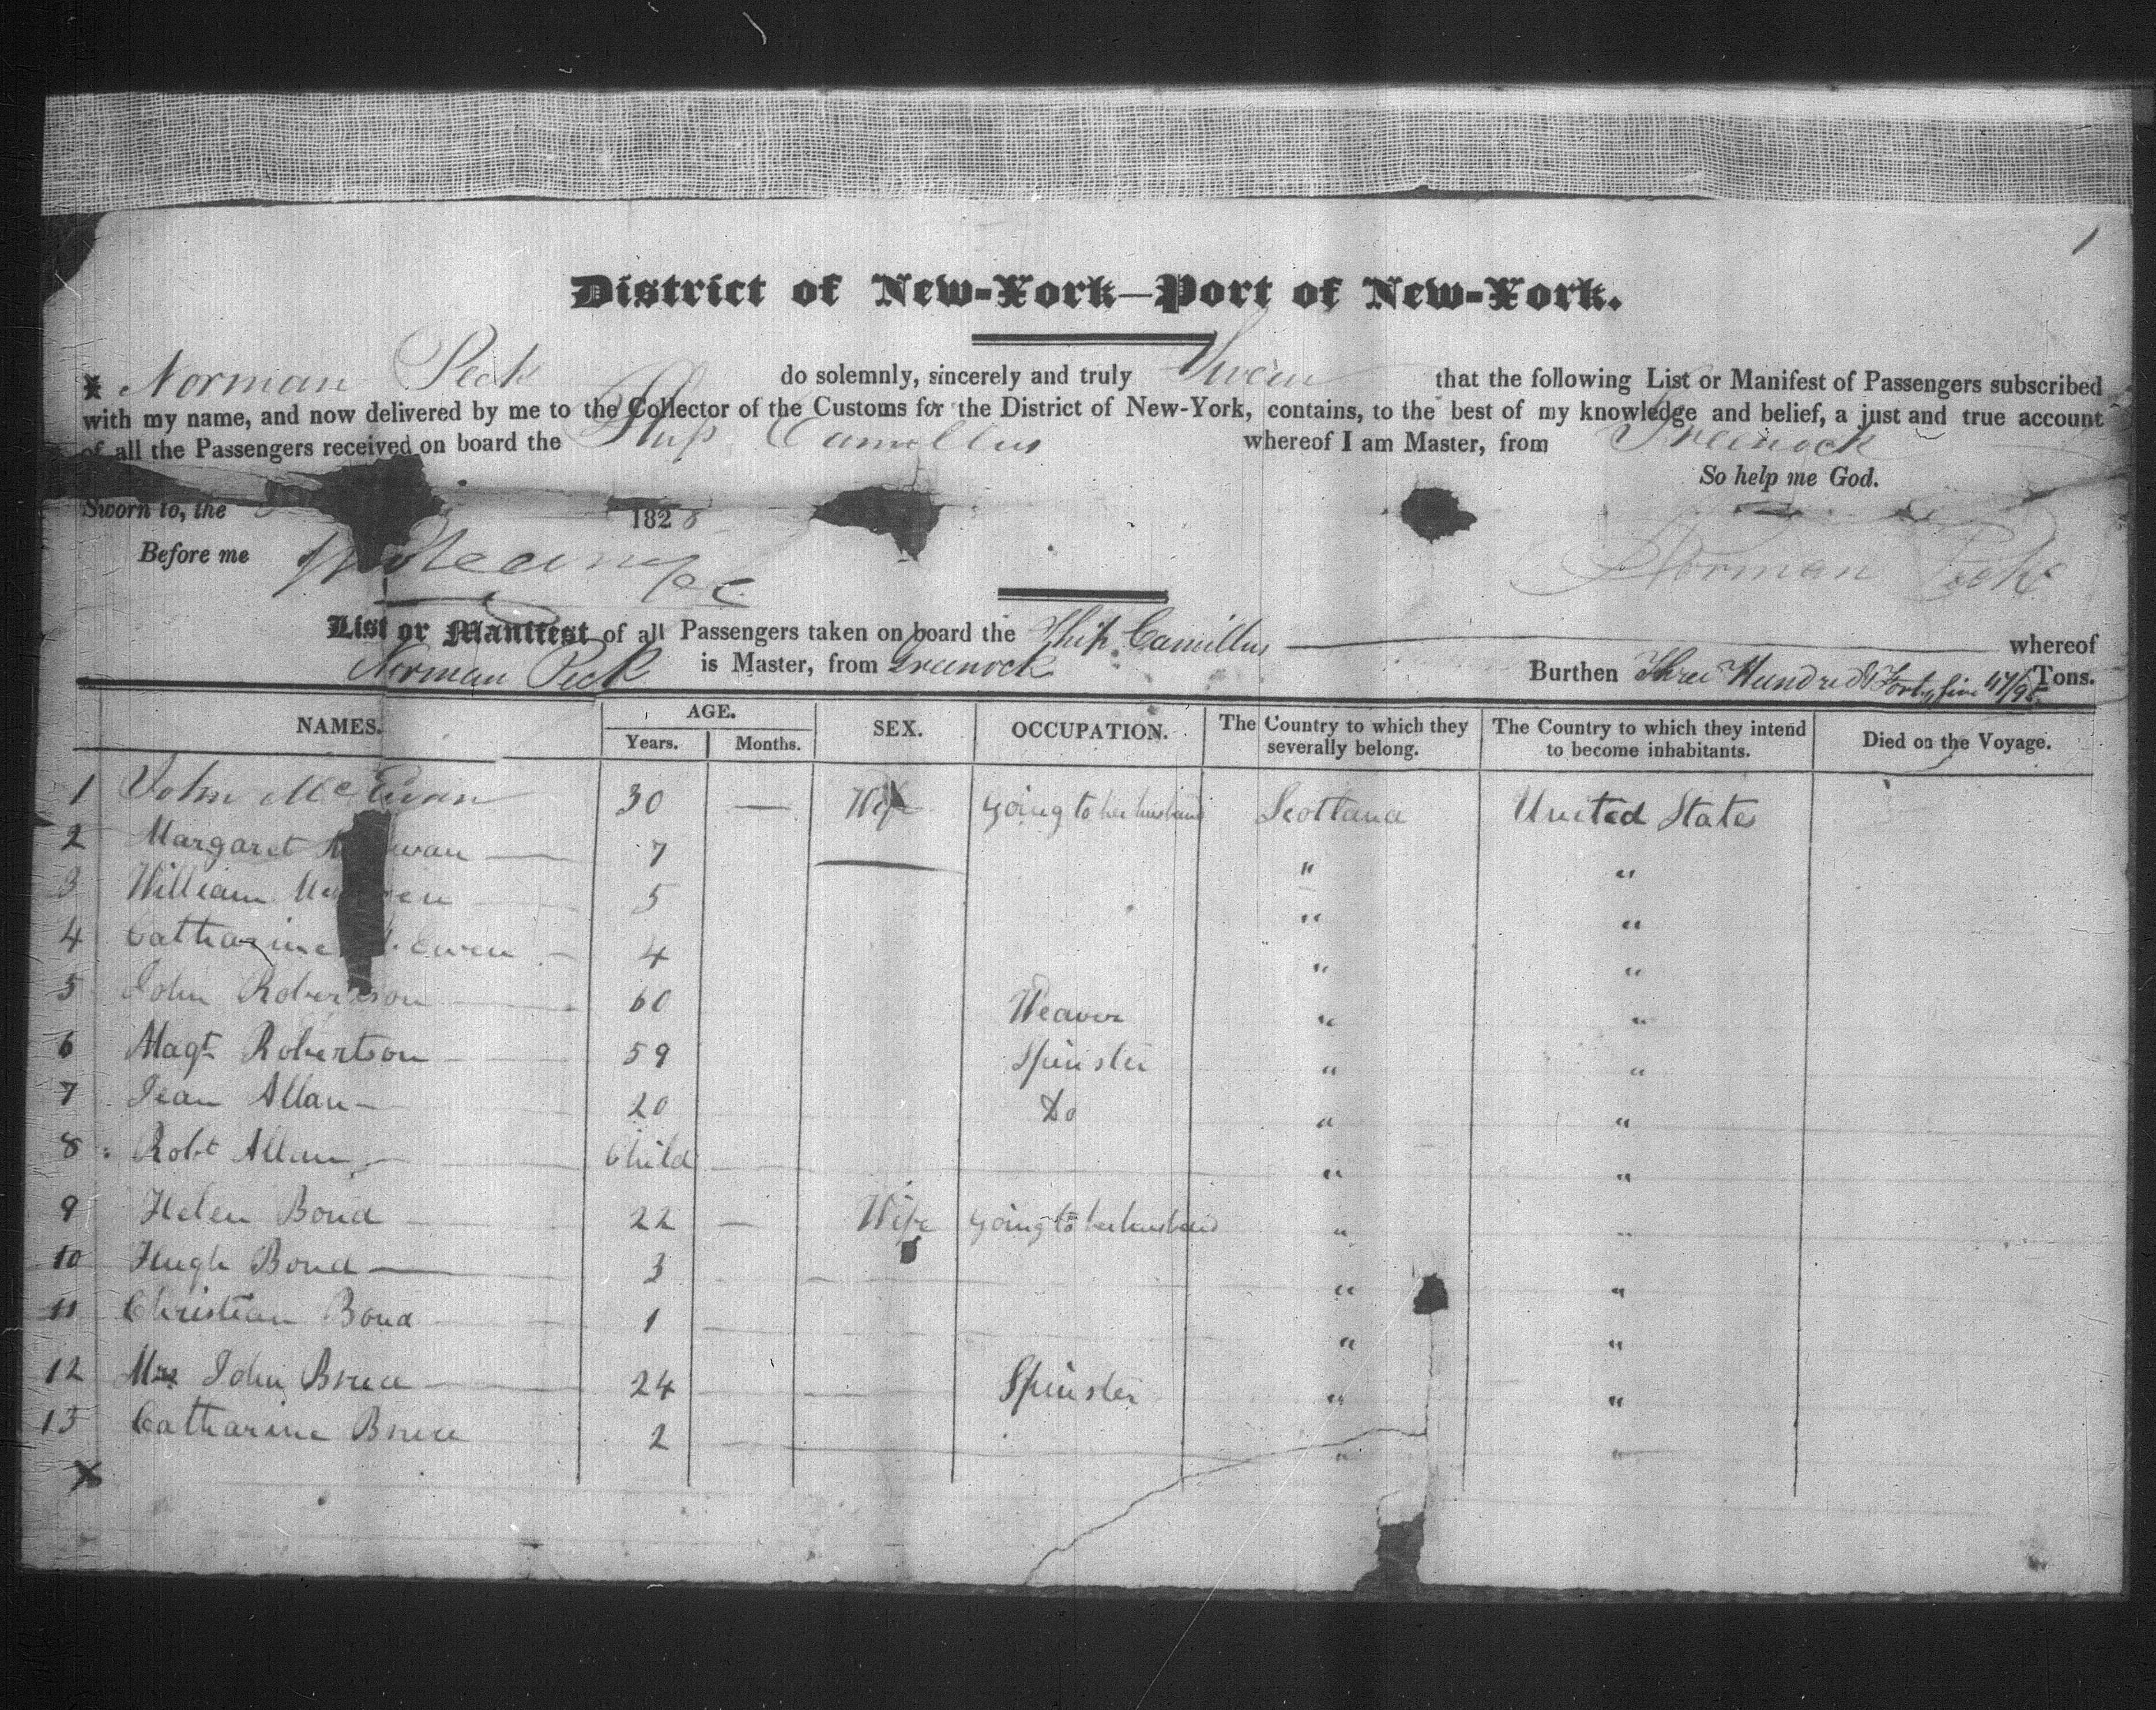 1
District of New-York—Port of New-York.
I Norman Peck do solemnly, sincerely and truly Swear that the following List or Manifest of Passengers subscribed
with my name, and now delivered by me to the Collector of the Customs for the District of New-York, contains, to the best of my knowledge and belief, a just and true account
of all the Passengers received on board the Ship Camillus whereof I am Master, from Greenock
So help me God.
Sworn to, the 1828
Before me Norman Peck
List or Manifest of all Passengers taken on board the Ship Camillus whereof
Norman Peck is Master, from Greenock Burthen Three Hundred & Forty five 47/95 Tons.
NAMES. AGE. SEX. OCCUPATION. The Country to which they severally belong. The Country to which they intend to become inhabitants. Died on the Voyage.
Years. Months.
1 John McEwan 30 — Wife Going to her husband Scotland United States
2 Margaret wan 7 " "
3 William en 5 " "
4 Catharine Ewen 4 " "
5 John Robertson 60 Weaver " "
6 Magt Robertson 59 Spinster " "
7 Jean Allan 20 Do " "
8 Robt Allan Child " "
9 Helen Bond 22 — Wife Going to her husband " "
10 Hugh Bond 3 " "
11 Christian Bond 1 " "
12 Mrs John Bruce 24 Spinster " "
13 Catharine Bruce 2 " "
X